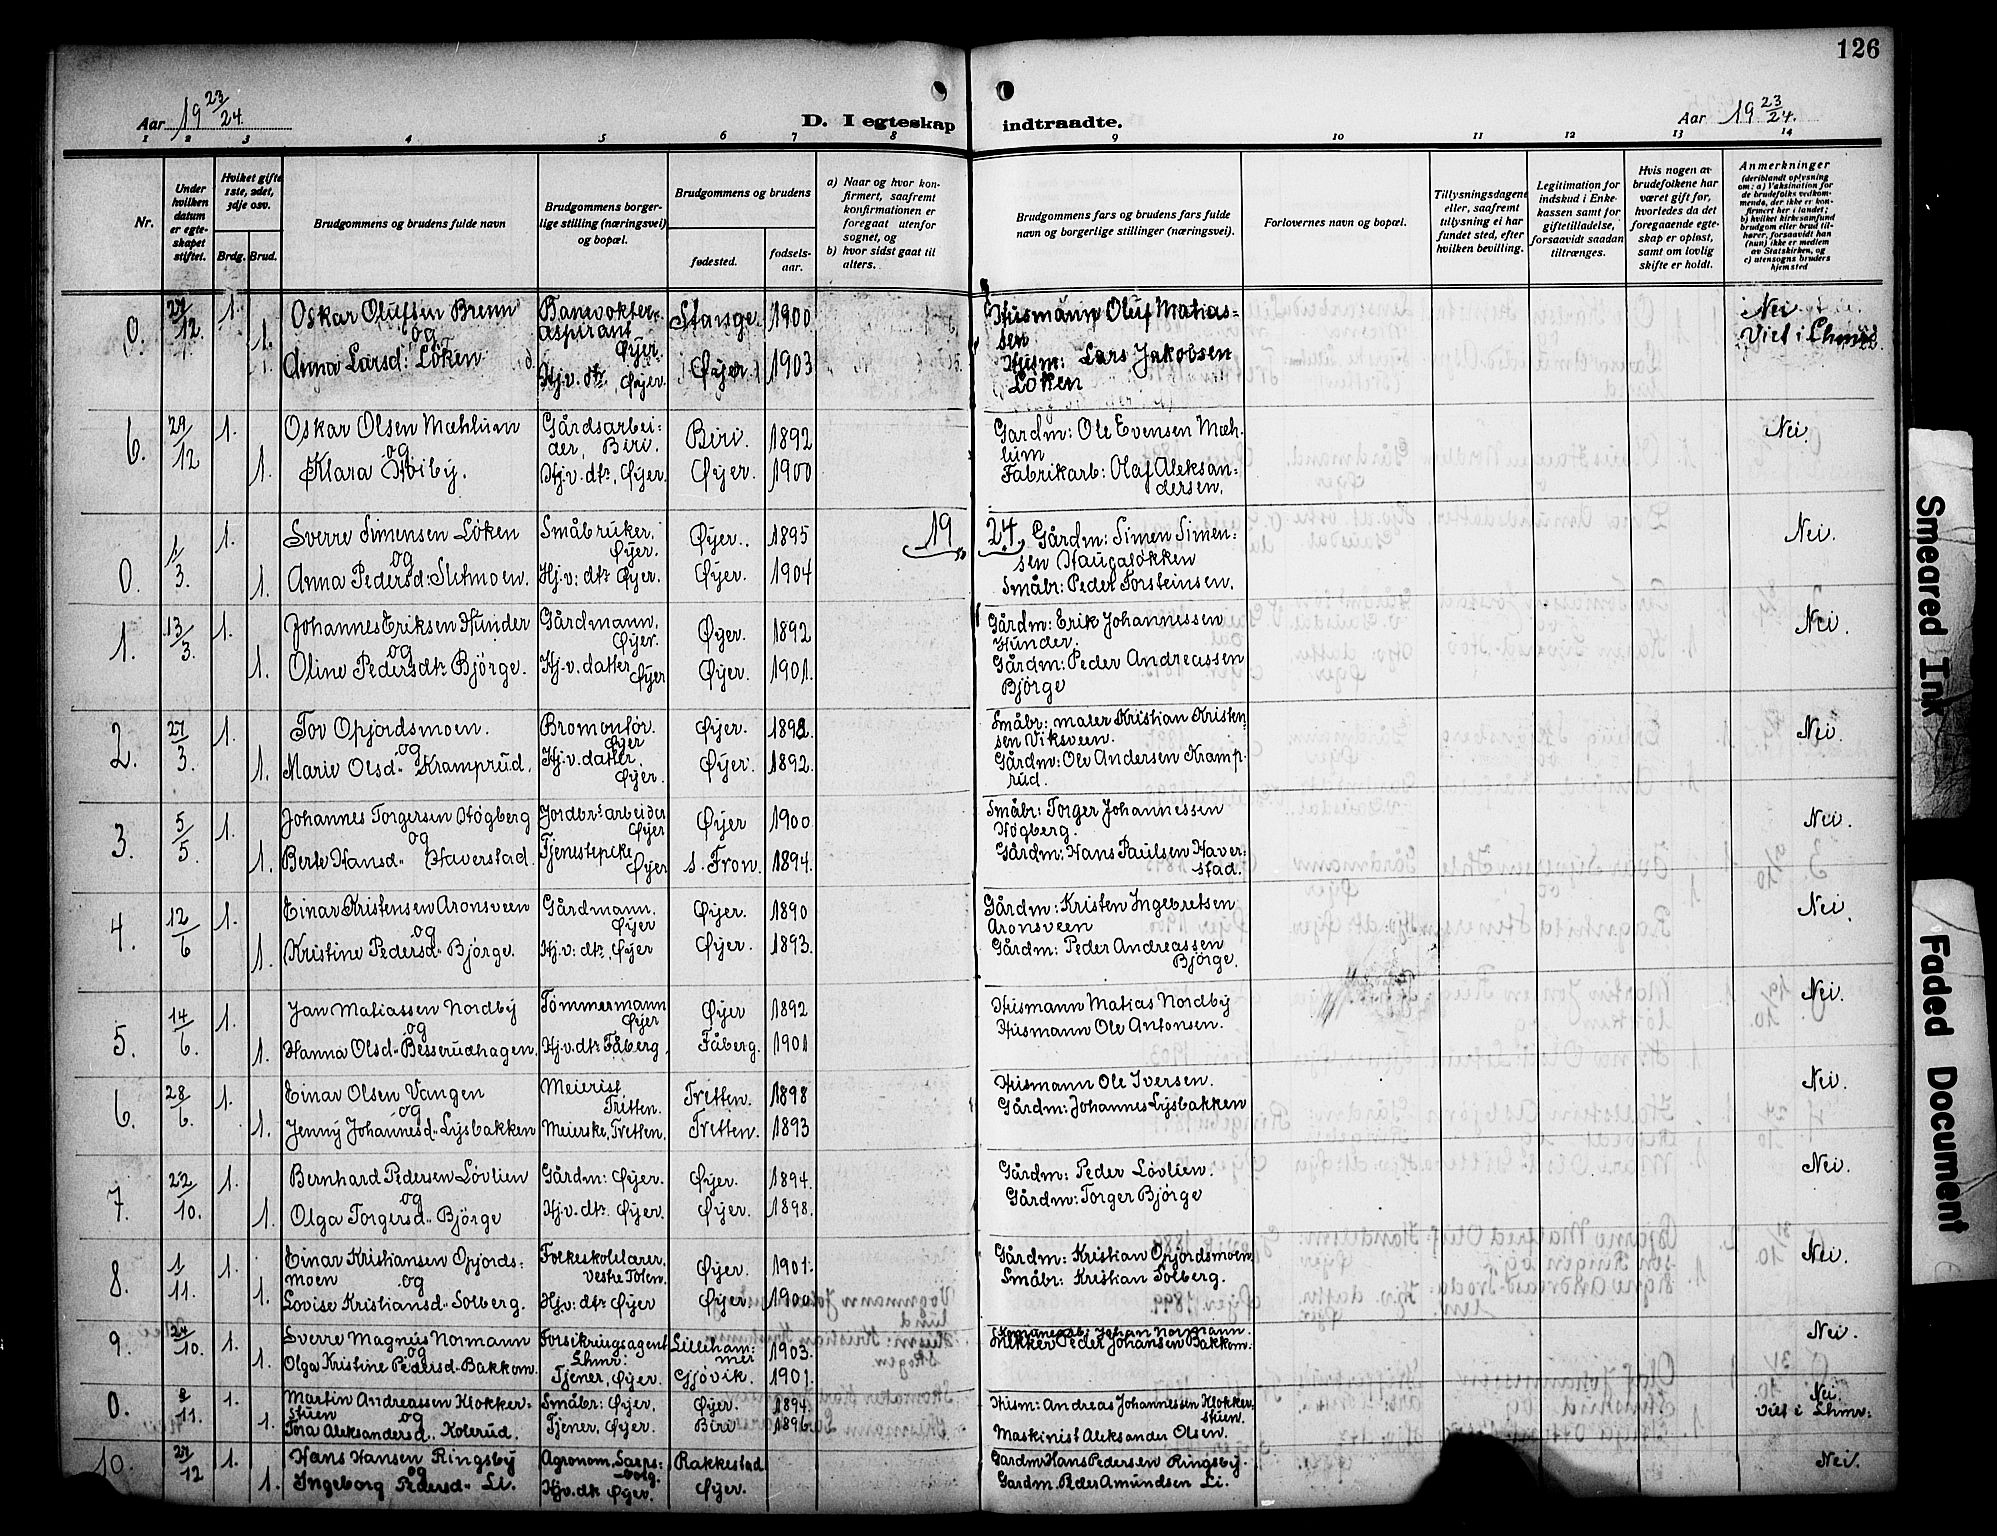 126
Aar 19 23/24.
D. I egteskap indtraadte.
Aar 19 23/24.
1 2 3 4 5 6 7 8 9 10 11 12 13 14
Nr.
Under hvilken datum er egteskapet stiftet.
Hvilket gifte 1ste, 2det, 3dje osv.
Brdg. Brud.
Brudgommens og brudens fulde navn
Brudgommens borgerlige stilling (næringsvei) og bopæl.
Brudgommens og brudens
fødested.
fødselsaar.
a) Naar og hvor konfirmert, saafremt konfirmationen er foregaat utenfor sognet, og
b) hvor sidst gaat til alters.
Brudgommens fars og brudens fars fulde navn og borgerlige stillinger (næringsvei).
Forlovernes navn og bopæl.
Tillysningsdagene eller, saafremt tillysning ei har fundet sted, efter hvilken bevilling.
Legitimation for indskud i Enkekassen samt for giftetilladelse, forsaavidt saadan tiltrænges.
Hvis nogen av brudefolkene har været gift før, hvorledes da det foregaaende egteskap er opløst, samt om lovlig skifte er holdt.
Anmerkninger
(deriblandt oplysning om: a) Vaksination for de brudefolks vedkommende, der ikke er konfirmert her i landet; b) hvilket kirkesamfund brudgom eller brud tilhører, forsaavidt han (hun) ikke er medlem av Statskirken, og c) utensogns bruders hjemsted
0. 27/12 1. Oskar Olufsen Brenn Banevokteraspirant Øyer. Stange. 1900 Husmann Oluf Matiassen Nei
og
1. Anna Larsd: Löken Hj.v. dtr. Øyer. Øyer 1903 Husm: Lars Jakobsen Löken Viet i Lhmr
6. 29/12 1. Oskar Olsen Mæhlum Gårdsarbeider, Biri. Biri. 1892 Gardm: Ole Evensen Mæhlum Nei.
og
1. Klara Höiby. Hj.v. dtr, Øyer. Øyer. 1900 Fabrikarb: Olaf Aleksandersen.
19 24.
0. 1/3. 1. Sverre Simensen Löken Småbruker, Øyer. Øyer. 1895 Gårdm: Simen Simensen Haugaløkken Nei.
og
1. Anna Pedersd: Sletmoen. Hj.v: dtr Øyer. Øyer. 1904 Småbr: Peder Torsteinsen.
1. 13/3. 1. Johannes Eriksen Hunder Gårdmann, Øyer. Øyer. 1892 Gårdm: Erik Johannessen Hunder. Nei.
og
1. Oline Pedersdtr Björge. Hj.v. datter Øyer Øyer. 1901. Gårdm: Peder Andreassen Björge
2. 27/3. 1. Tov Opjordsmoen. Bromontör. Øyer Øyer. 1892. Småbr: maler Kristian Kristensen Viksveen. Nei.
og
1. Marie Olsd" Kramprud. Hj.v. datter, Øyer. Øyer. 1892. Gårdm: Ole Andersen Kramprud.
3. 5/5. 1. Johannes Torgersen Högberg Jordbr.sarbeider Øyer Øyer 1900 Småbr: Torger Johannessen Högberg. Nei.
og
1. Berte Hansd" Haverstad. Tjenestepike Øyer S. Fron. 1894. Gårdm: Hans Paulsen Haverstad.
4. 12/6 1. Einar Kristensen Aronsveen Gårdmann. Øyer Øyer. 1890 Gårdm: Kristen Ingebretsen Aronsveen Nei.
og
1. Kristine Pedersd" Björge. Hj.v: dtr, Øyer Øyer. 1893. Gårdm: Peder Andreassen Björge.
5. 14/6. 1. Jan Matiassen Nordby Tömmermann Øyer Øyer 1892 Husmann Matias Nordby Nei.
og
1. Hanna Olsd" Besserudhagen. Hj.v. dtr Fåberg. Fåberg. 1901 Husmann Ole Antonsen.
6. 28/6. 1. Einar Olsen Vangen Meierist Tritten. Tretten. 1898 Husmann Ole Iversen. Nei.
og
1. Jenny Johannesd" Lysbakken Meierske, Tretten. Tretten. 1893 Gårdm: Johannes Lysbakken
7. 22/10. 1. Bernhard Pedersen Lövlien Gårdm: Øyer. Øyer. 1894. Gårdm: Peder Lövlien. Nei.
og
1. Olga Torgersd" Björge Hj.v. dtr. Øyer. Øyer. 1898. Gårdm: Torger Björge
8. 1/11. 1. Einar Kristiansen Opjordsmoen Folkeskolelærer, Vestre Toten. Øyer. 1901. Gårdm: Kristian Opjordsmoen Nei.
og
1. Lovise Kristiansd" Solberg. Hj.v: dtr Øyer Øyer 1900. Småbr: Kristian Solberg.
9. 24/10. 1. Sverre Magnus Normann Forsikringsagent Lhmr. Lillehammer 1903. Johan Normann. Nei.
og
1. Olga Kristine Pedersd" Bakkom. Tjener, Øyer. Gjövik. 1901. Snikker Peder Johansen Bakkom.
0. 8/11. 1. Martin Andreassen Klokkerstuen Småbr: Øyer. Øyer. 1894. Husm: Andreas Johannessen Klokkerstuen. Nei.
og Viet i Lhmr:
1. Tora Aleksandersd. Kolerud. Tjener, Øyer. Biri 1896. Maskinist Aleksander Olsen.
10. 27/12 1. Hans Hansen Ringsby Agronom, Sarpsborg. Rakkestad Gardm Hans Pedersen Ringsby. Nei.
og
1. Ingeborg Pedersd" Li. Hj.v. dtr Øyer. Øyer. Gardm. Peder Amundsen Li.
Smeared Ink
Faded Document